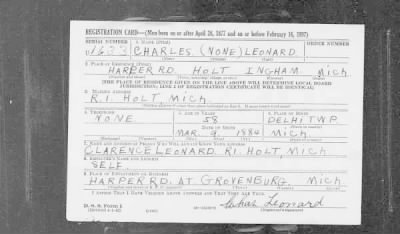 REGISTRATION CARD—(Men born on or after April 28, 1877 and on or before February 16, 1897)
SERIAL NUMBER 1. NAME (Print) ORDER NUMBER
U 1633 CHARLES (NONE) LEONARD
(First) (Middle) (Last)
2. PLACE OF RESIDENCE (Print)
HARPER RD. HOLT INGHAM MICH.
[THE PLACE OF RESIDENCE GIVEN ON THE LINE ABOVE WILL DETERMINE LOCAL BOARD
JURISDICTION; LINE 2 OF REGISTRATION CERTIFICATE WILL BE IDENTICAL]
3. MAILING ADDRESS
R.1. HOLT MICH.
4. TELEPHONE 5. AGE IN YEARS 6. PLACE OF BIRTH
NONE 58 DELHI TWP.
DATE OF BIRTH
MAR. 9 1884 MICH.
7. NAME AND ADDRESS OF PERSON WHO WILL ALWAYS KNOW YOUR ADDRESS
CLARENCE LEONARD R1. HOLT, MICH
8. EMPLOYER'S NAME AND ADDRESS
SELF
9. PLACE OF EMPLOYMENT OR BUSINESS
HARPER RD. AT GROVENBURG MICH
I AFFIRM THAT I HAVE VERIFIED ABOVE ANSWERS AND THAT THEY ARE TRUE.
D. S. S. Form 1
(Revised 4-1-42) Charles Leonard